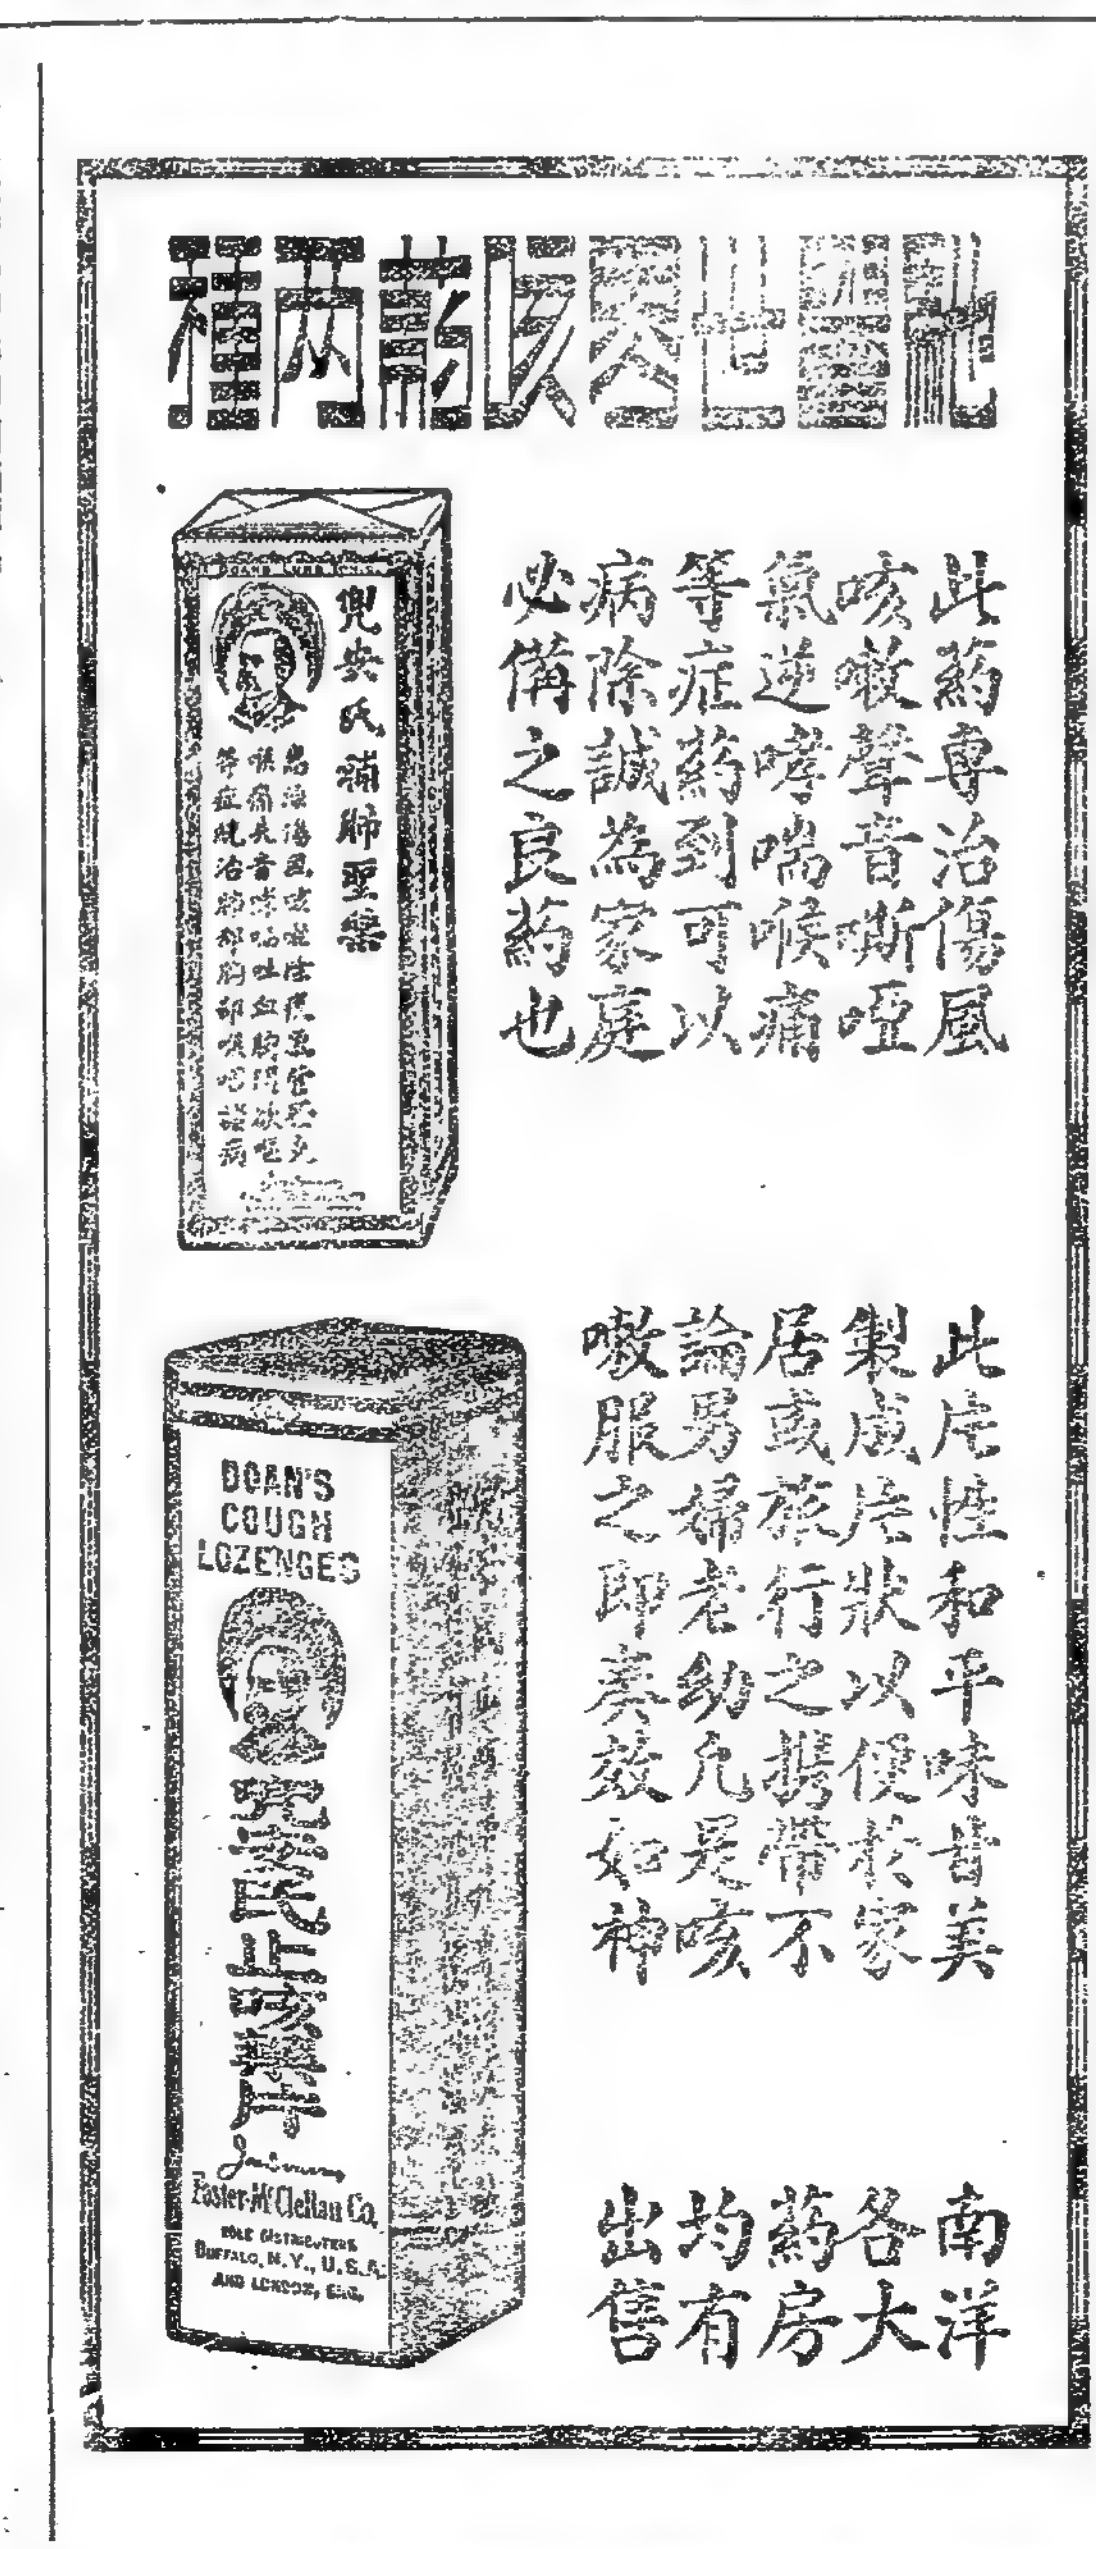 馳譽世界咳葯两種
此葯專治傷風
咳嗽聲音嘶啞
氣逆哮喘喉痛
等症葯到可以
病除誠為家庭
必備之良葯也
兜安氏補肺聖藥
傷風咳嗽
喉痛失音哮喘吐血胸悶欲嘔
等症統治肺部胸部喉嚨諸病
此片性和平味甘美
製成片狀以便於家
居或旅行之携帶不
論男婦老幼凡是咳
嗽服之即奏效如神
DOAN'S
COUGH
LOZENGES
兜安氏止咳藥片
Foster-McClellan Co.
SOLE DISTRIBUTERS
BUFFALO, N.Y., U.S.A.
AND LONDON, ENG.
南洋
各大
葯房
均有
出售